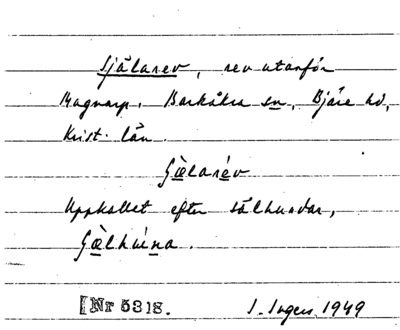 Själarev, rev utanför
Magnarp. Barkåkra sn, Bjäre hd,
Krist. län.
Sjæ̀larév
Uppkallet efter sälhundar,
Sjæ̀lhúna.
[Nr 5318. I. Ingers 1949